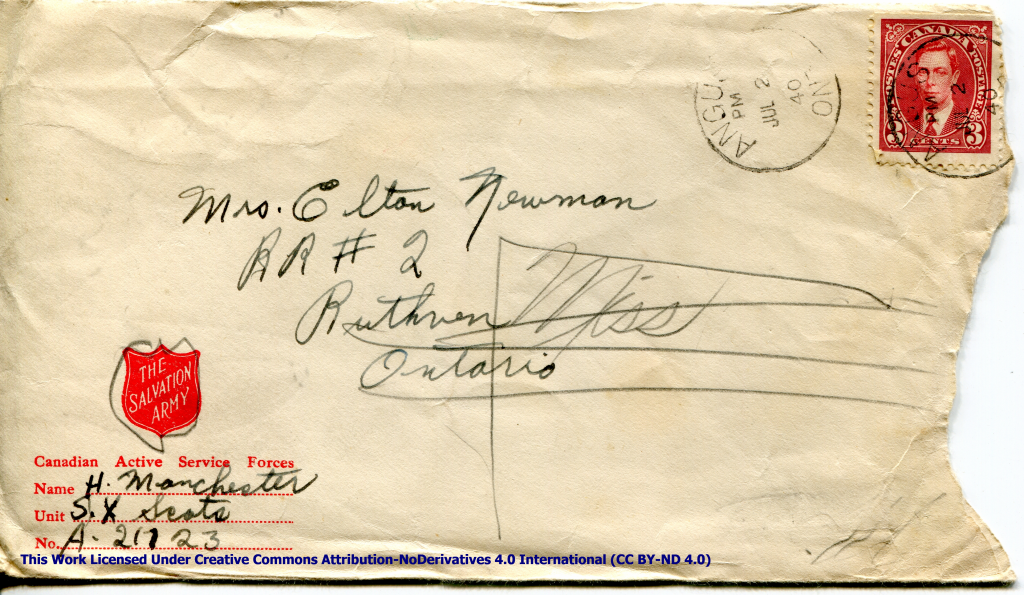 ANGU
PM
JUL 2
40
ONT
POSTES CANADA POSTAGE
PM
JUL 2
40
3 CENTS 3
Mrs. Elton Newman
RR # 2
Ruthven
Miss
Ontario
THE
SALVATION
ARMY
Canadian Active Service Forces
Name H. Manchester
Unit S.X Scots
No. A-21723
This Work Licensed Under Creative Commons Attribution-NoDerivatives 4.0 International (CC BY-ND 4.0)